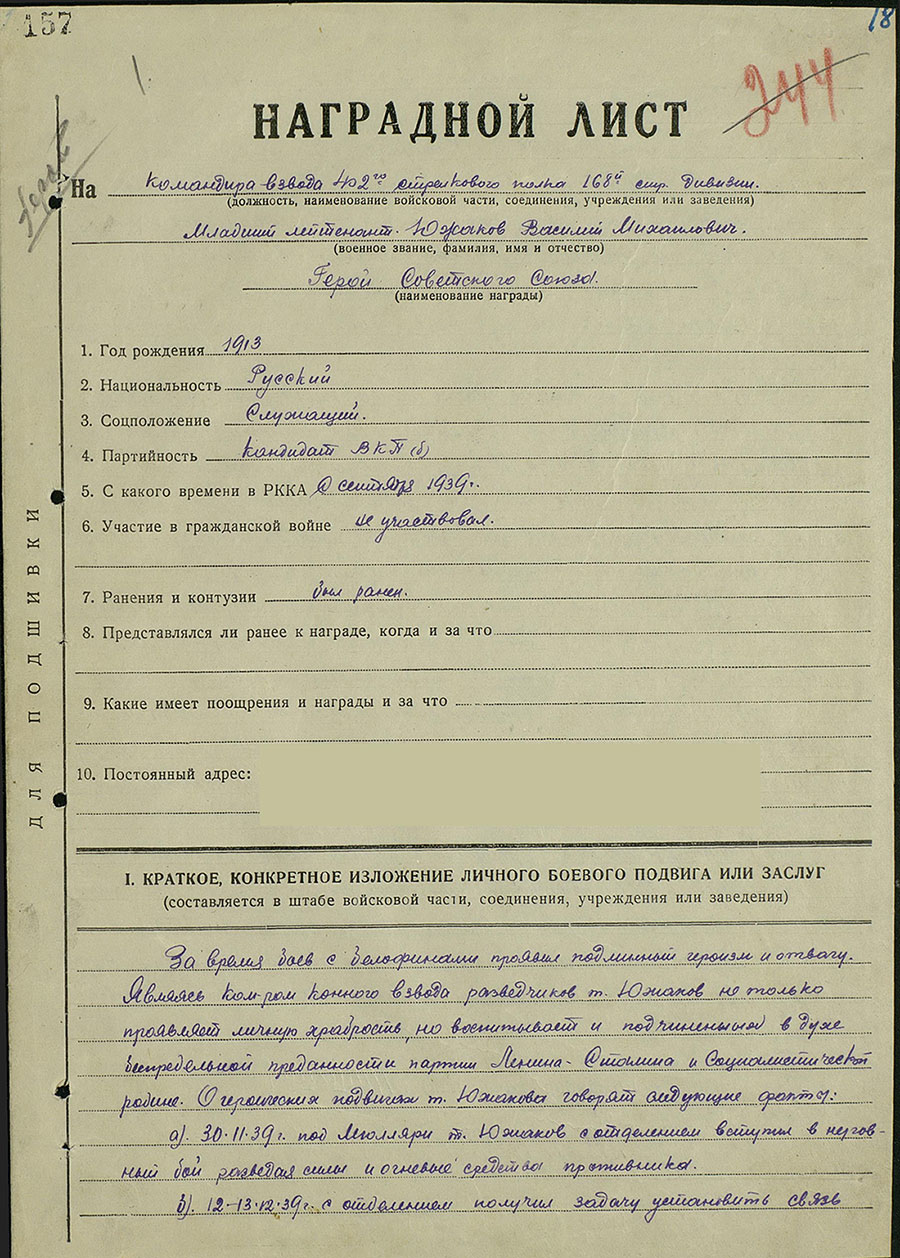 157
18
1.
244
НАГРАДНОЙ ЛИСТ
Герой
На командира взвода 402го стрелкового полка 168й стр. дивизии.
(должность, наименование войсковой части, соединения, учреждения или заведения)
Младший лейтенант. Южаков Василий Михайлович.
(военное звание, фамилия, имя и отчество)
Герой Советского Союза.
(наименование награды)
1. Год рождения 1913
2. Национальность Русский
3. Соцположение Служащий.
4. Партийность кандидат ВКП(б)
5. С какого времени в РККА С сентября 1939г.
6. Участие в гражданской войне не участвовал.
7. Ранения и контузии был ранен.
8. Представлялся ли ранее к награде, когда и за что
9. Какие имеет поощрения и награды и за что
10. Постоянный адрес:
ДЛЯ ПОДШИВКИ
I. КРАТКОЕ, КОНКРЕТНОЕ ИЗЛОЖЕНИЕ ЛИЧНОГО БОЕВОГО ПОДВИГА ИЛИ ЗАСЛУГ
(составляется в штабе войсковой части, соединения, учреждения или заведения)
За время боев с белофинами проявил подлинный героизм и отвагу.
Являясь ком-ром конного взвода разведчиков т. Южаков не только
проявляет личную храбрость, но воспитывает и подчиненных в духе
беспредельной преданности партии Ленина-Сталина и Социалистической
родине. О героических подвигах т. Южакова говорят следующие факты:
а). 30.11.39г. под Мюлляри т. Южаков с отделением вступил в неров-
ный бой разведая силы и огневые средства противника.
б). 12-13.12.39г. с отделением получил задачу установить связь